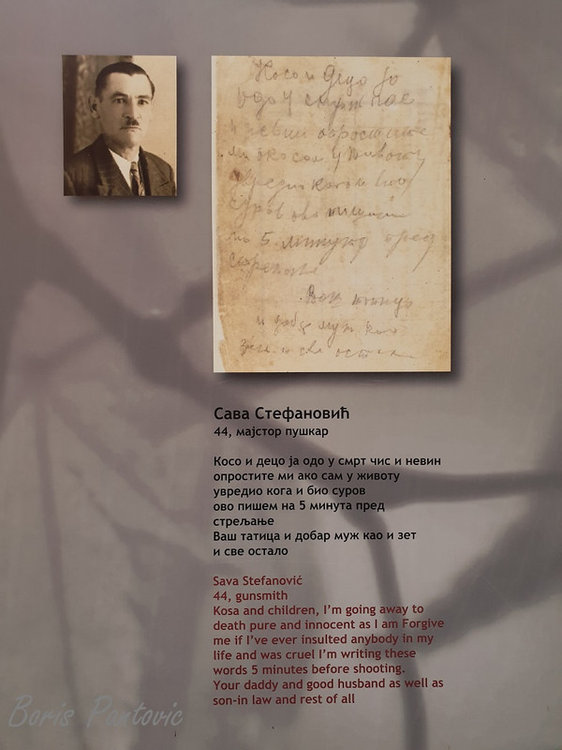 Косо и Децо ја
одо у смрт чис
и невин опростите
ми ако сам у животу
увредио кога и био
суров ово пишем
на 5 минута пред
стрељање
Ваш татица
и добар муж као
зет и све остало
Сава Стефановић
44, мајстор пушкар
Косо и децо ја одо у смрт чис и невин
опростите ми ако сам у животу
увредио кога и био суров
ово пишем на 5 минута пред
стрељање
Ваш татица и добар муж као и зет
и све остало
Sava Stefanović
44, gunsmith
Kosa and children, I'm going away to
death pure and innocent as I am Forgive
me if I've ever insulted anybody in my
life and was cruel I'm writing these
words 5 minutes before shooting.
Your daddy and good husband as well as
son-in law and rest of all
Boris Pantovic